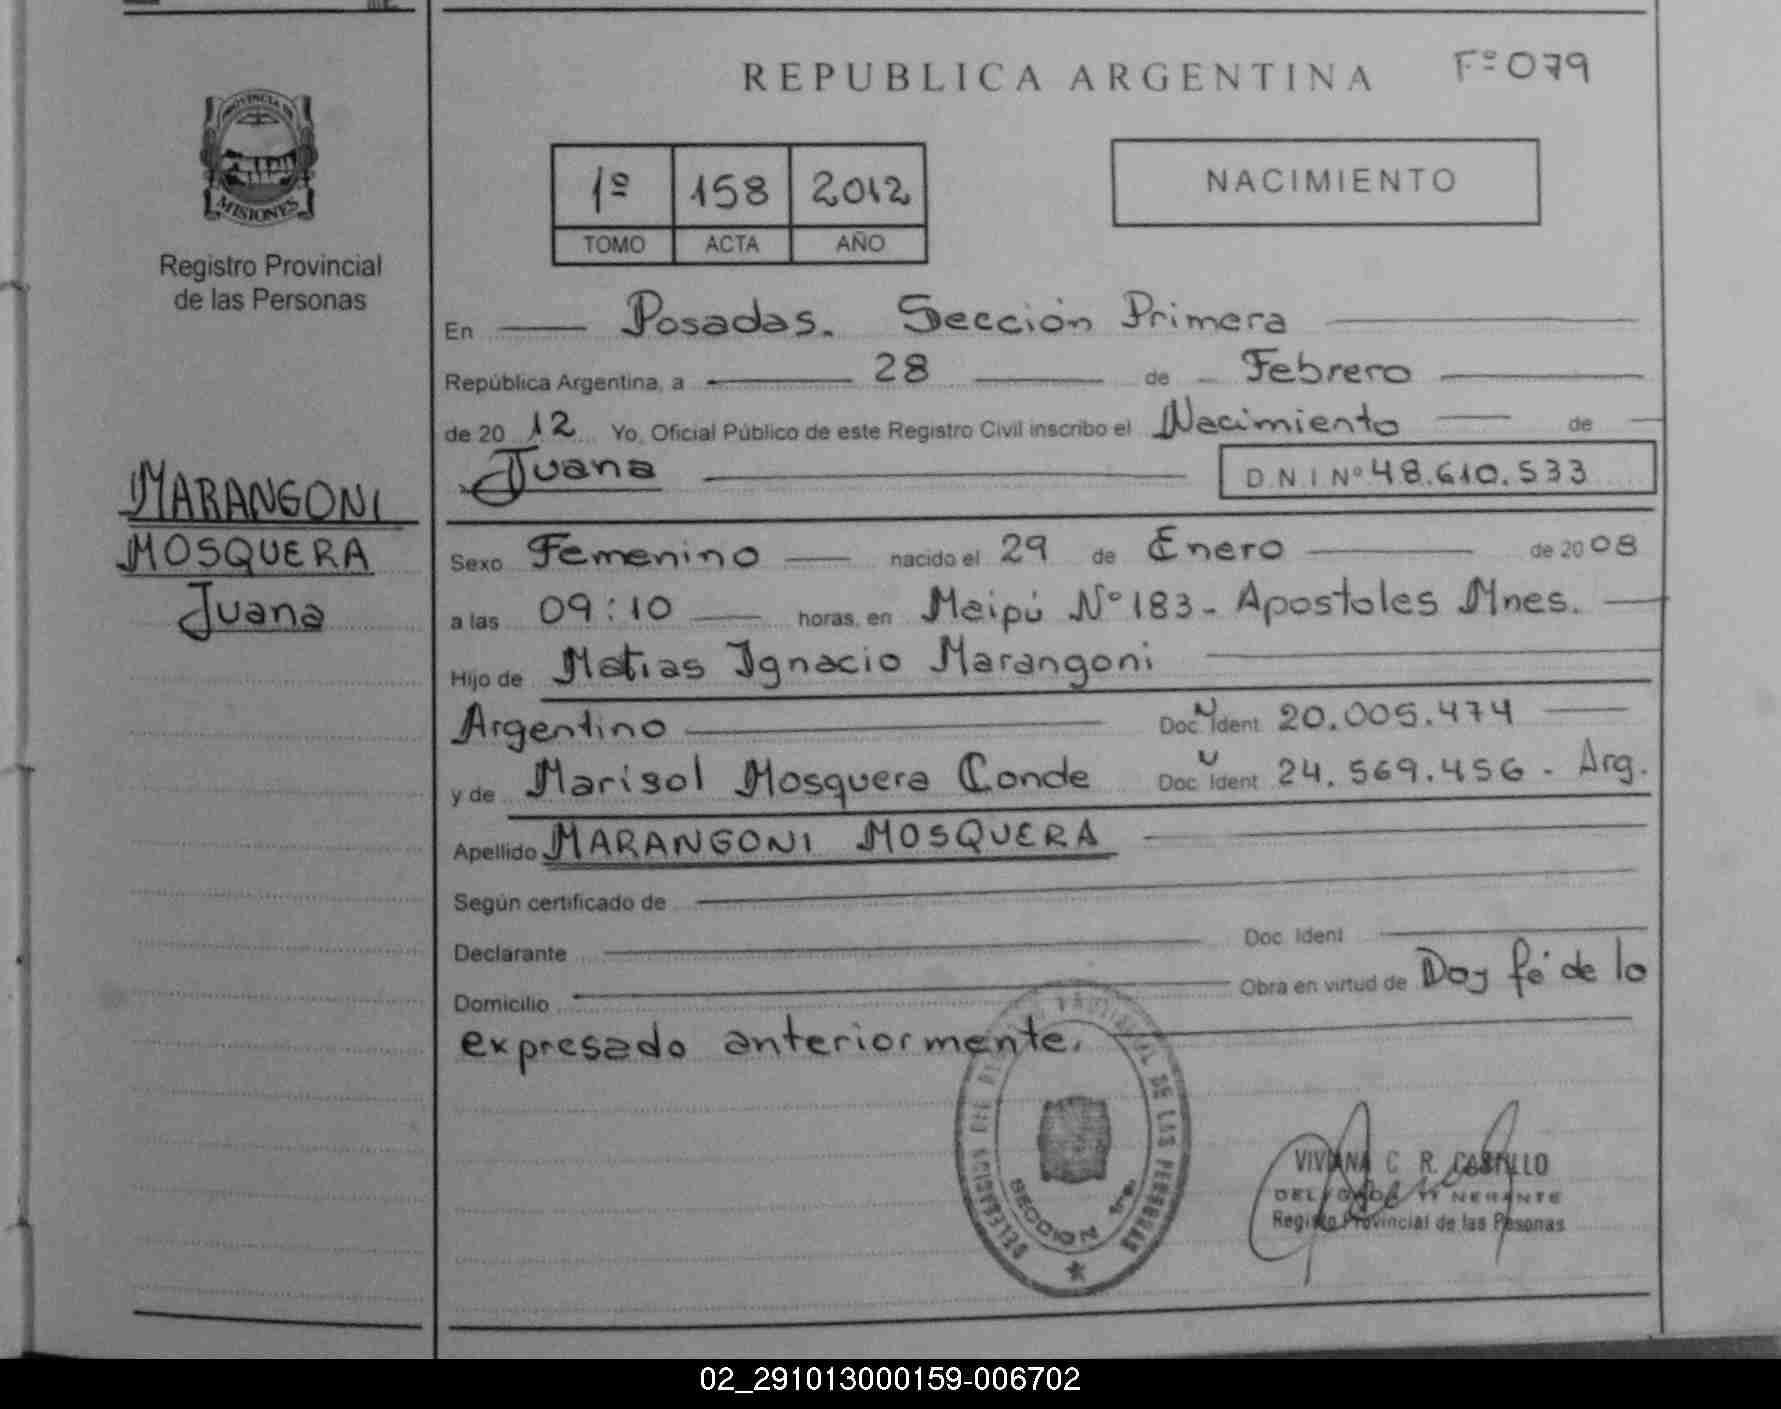 REPUBLICA ARGENTINA
Fº 079
PROVINCIA DE
MISIONES
Registro Provincial
de las Personas
1º 158 2012
TOMO ACTA AÑO
NACIMIENTO
En Posadas. Sección Primera
República Argentina, a 28 de Febrero
de 2012 Yo, Oficial Público de este Registro Civil inscribo el Nacimiento de
Juana D.N.I Nº 48.610.533
MARANGONI
MOSQUERA
Juana
Sexo Femenino nacido el 29 de Enero de 2008
a las 09:10 horas, en Maipú Nº 183 - Apostoles Mnes.
Hijo de Matias Ignacio Marangoni
Argentino Doc. N Ident 20.005.474
y de Marisol Mosquera Conde Doc. Ident 24.569.456 - Arg.
Apellido MARANGONI MOSQUERA
Según certificado de
Declarante Doc Ident
Domicilio Obra en virtud de Doy fé de lo
expresado anteriormente.
DE LAS PERSONAS
SECCION 1ra.
VIVIANA C. R. CASTILLO
Registro Provincial de las Pesonas
02_291013000159-006702